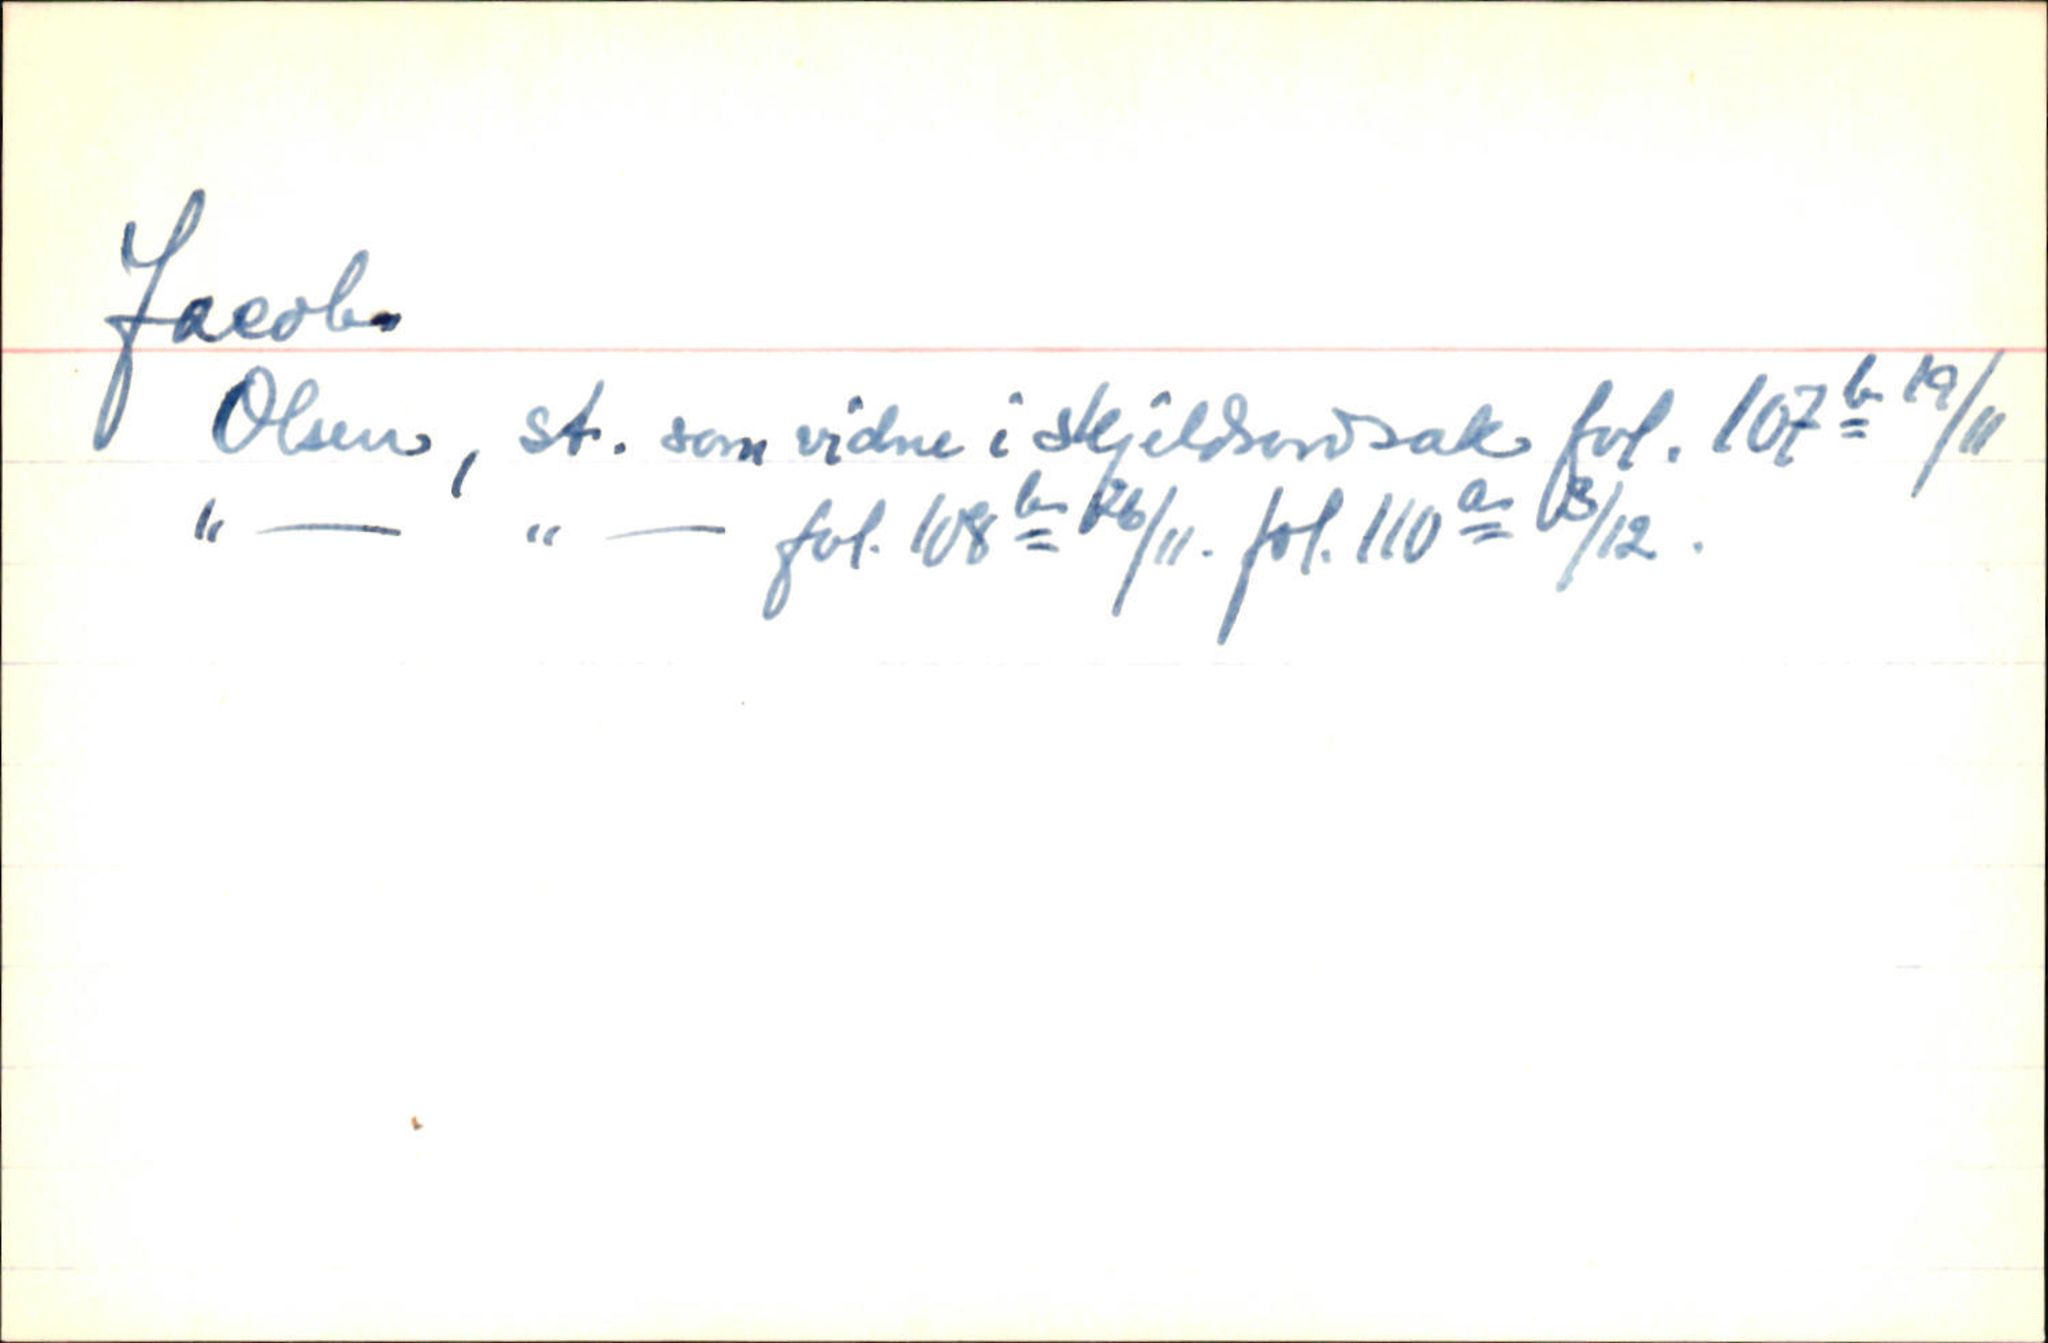 Jacob
Olsen, st. som vidne i skjeldsordsak fol. 107b 19/11
"— "— fol. 108b 26/11. fol. 110a 3/12.